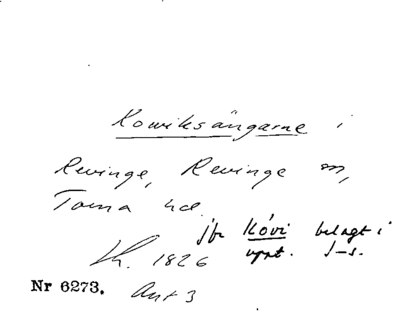 Kowiksängarne i
Revinge, Revinge sn,
Torna hd.
jfr Kóvi belagt i
uppt. J-s.
Lk. 1826
Nr 6273. Akt 3